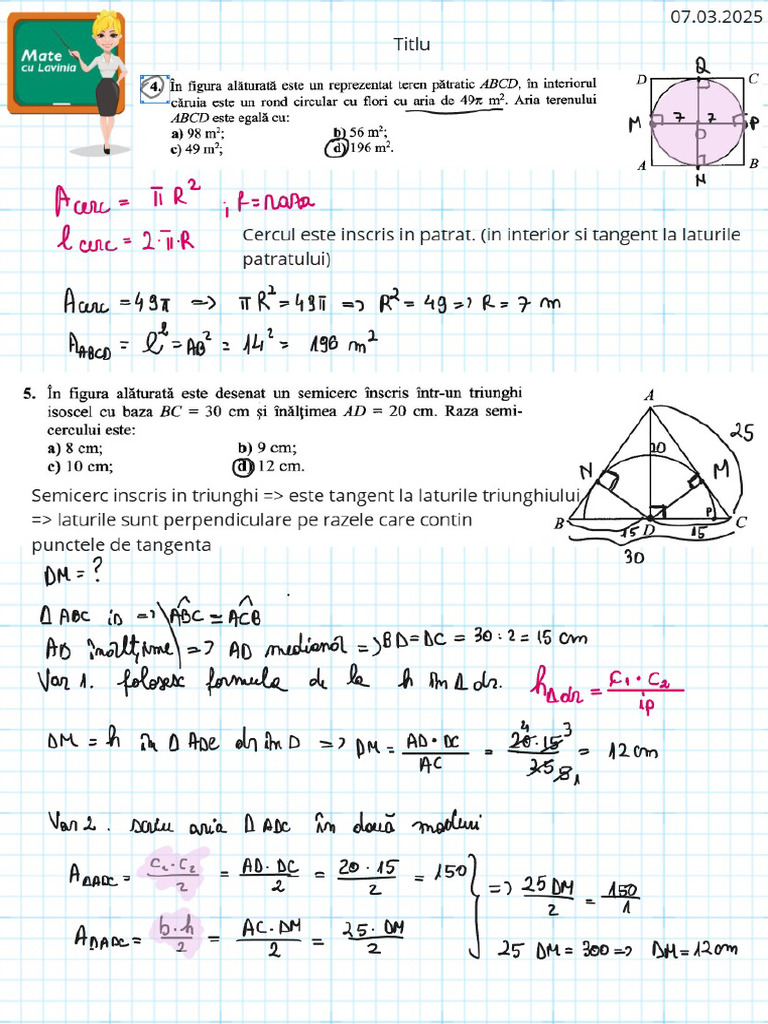 07.03.2025
Titlu
Mate
cu Lavinia
4. În figura alăturată este un reprezentat teren pătratic ABCD, în interiorul
căruia este un rond circular cu flori cu aria de 49π m². Aria terenului
ABCD este egală cu:
a) 98 m²; b) 56 m²;
c) 49 m²; d) 196 m².
D Q C
M 7 7 P
O
A N B
A cerc = π R² ; r = raza
l cerc = 2·π·R
Cercul este inscris in patrat. (in interior si tangent la laturile
patratului)
A cerc = 49π => πR² = 49π => R² = 49 => R = 7 m
A ABCD = l² = AB² = 14² = 196 m²
5. În figura alăturată este desenat un semicerc înscris într-un triunghi
isoscel cu baza BC = 30 cm și înălțimea AD = 20 cm. Raza semi-
cercului este:
a) 8 cm; b) 9 cm;
c) 10 cm; d) 12 cm.
A
25
20
N M
P
B 15 D 15 C
30
Semicerc inscris in triunghi => este tangent la laturile triunghiului
=> laturile sunt perpendiculare pe razele care contin
punctele de tangenta
DM = ?
Δ ABC is => ABC ≡ ACB
AD înălțime => AD mediană => BD = DC = 30 : 2 = 15 cm
Var 1. folosesc formula de la h în Δ dr. h Δdr = c₁ · c₂ / ip
DM = h în Δ ADC dr în D => DM = AD · DC / AC = 20 · 15 / 25 = 12 cm
4 3
5 1
Var 2. scriu aria Δ ADC în două moduri
A ΔADC = c₁ · c₂ / 2 = AD · DC / 2 = 20 · 15 / 2 = 150
=> 25 DM / 2 = 150 / 1
A ΔADC = b · h / 2 = AC · DM / 2 = 25 · DM / 2
25 DM = 300 => DM = 12 cm